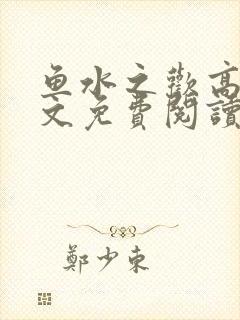 鱼水之歡高
文免費閱讀
鄭少東